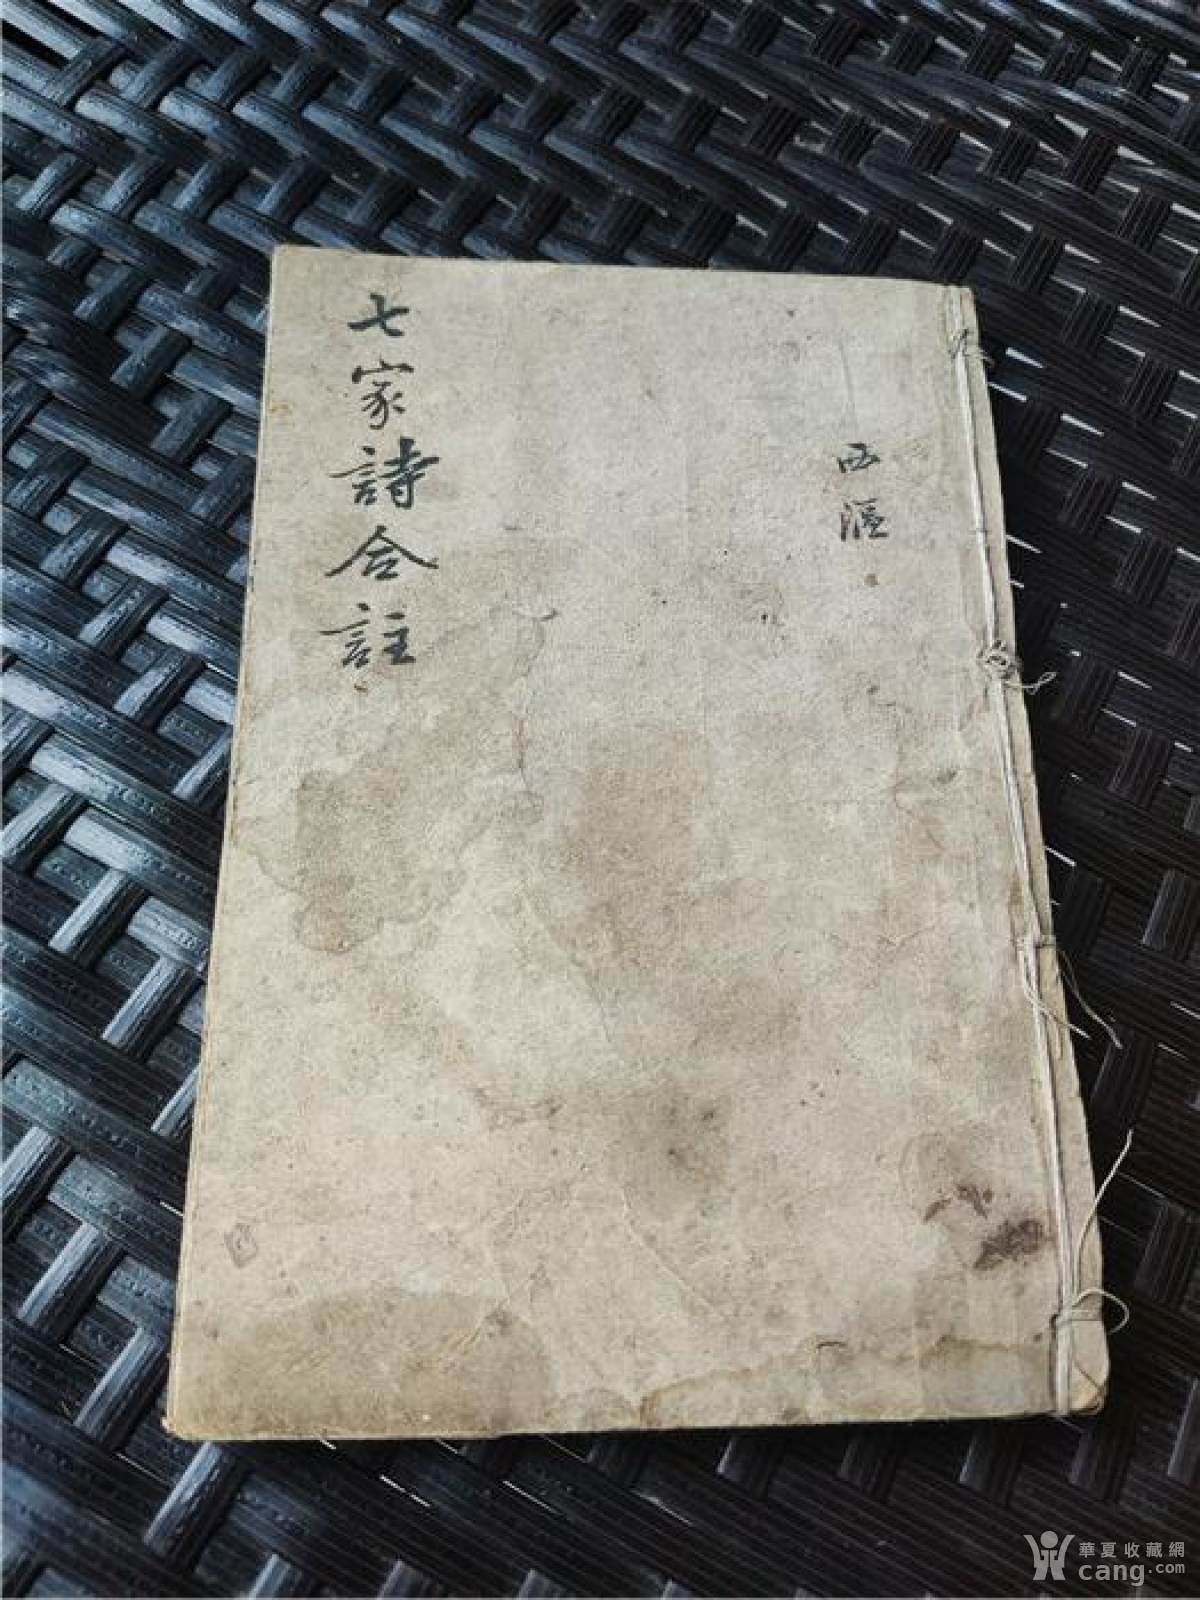 七家詩合註
西
華夏收藏網
cang.com